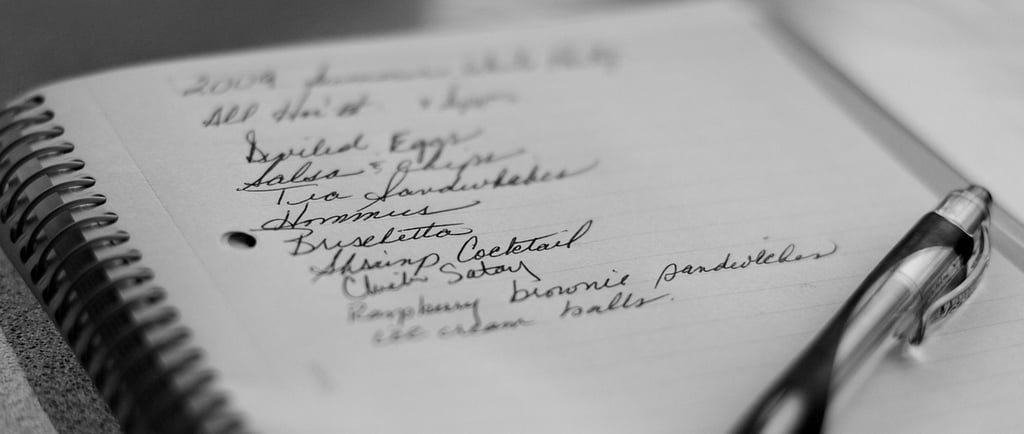 2009 Summer White Party
All Hors'd + dipps
Deviled Eggs
Salsa & Chips
Tea Sandwhches
Hommus
Bruschetta
Shrimp Cocktail
Chicken Satay
Raspberry brownie sandwiches
ice cream balls.